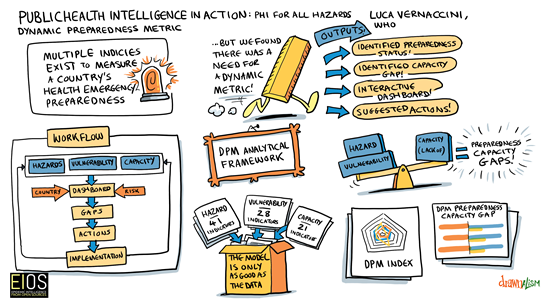 PUBLIC HEALTH INTELLIGENCE IN ACTION: PHI FOR ALL HAZARDS
DYNAMIC PREPAREDNESS METRIC
LUCA VERNACCINI,
WHO
MULTIPLE INDICIES
EXIST TO MEASURE
A COUNTRY'S
HEALTH EMERGENCY
PREPAREDNESS
...BUT WE FOUND
THERE WAS A
NEED FOR
A DYNAMIC
METRIC!
OUTPUTS:
IDENTIFIED PREPAREDNESS
STATUS!
IDENTIFIED CAPACITY
GAP!
INTERACTIVE
DASHBOARD!
SUGGESTED ACTIONS!
WORKFLOW
HAZARDS
VULNERABILITY
CAPACITY
COUNTRY
DASHBOARD
RISK
GAPS
ACTIONS
IMPLEMENTATION
DPM ANALYTICAL
FRAMEWORK
HAZARD
VULNERABILITY
CAPACITY
(LACK OF)
=
PREPAREDNESS
CAPACITY
GAPS!
HAZARD
41
INDICATORS
VULNERABILITY
28
INDICATORS
CAPACITY
21
INDICATOR
THE MODEL
IS ONLY
AS GOOD AS
THE DATA
DPM INDEX
DPM PREPAREDNESS
CAPACITY GAP
EIOS
drawnalism